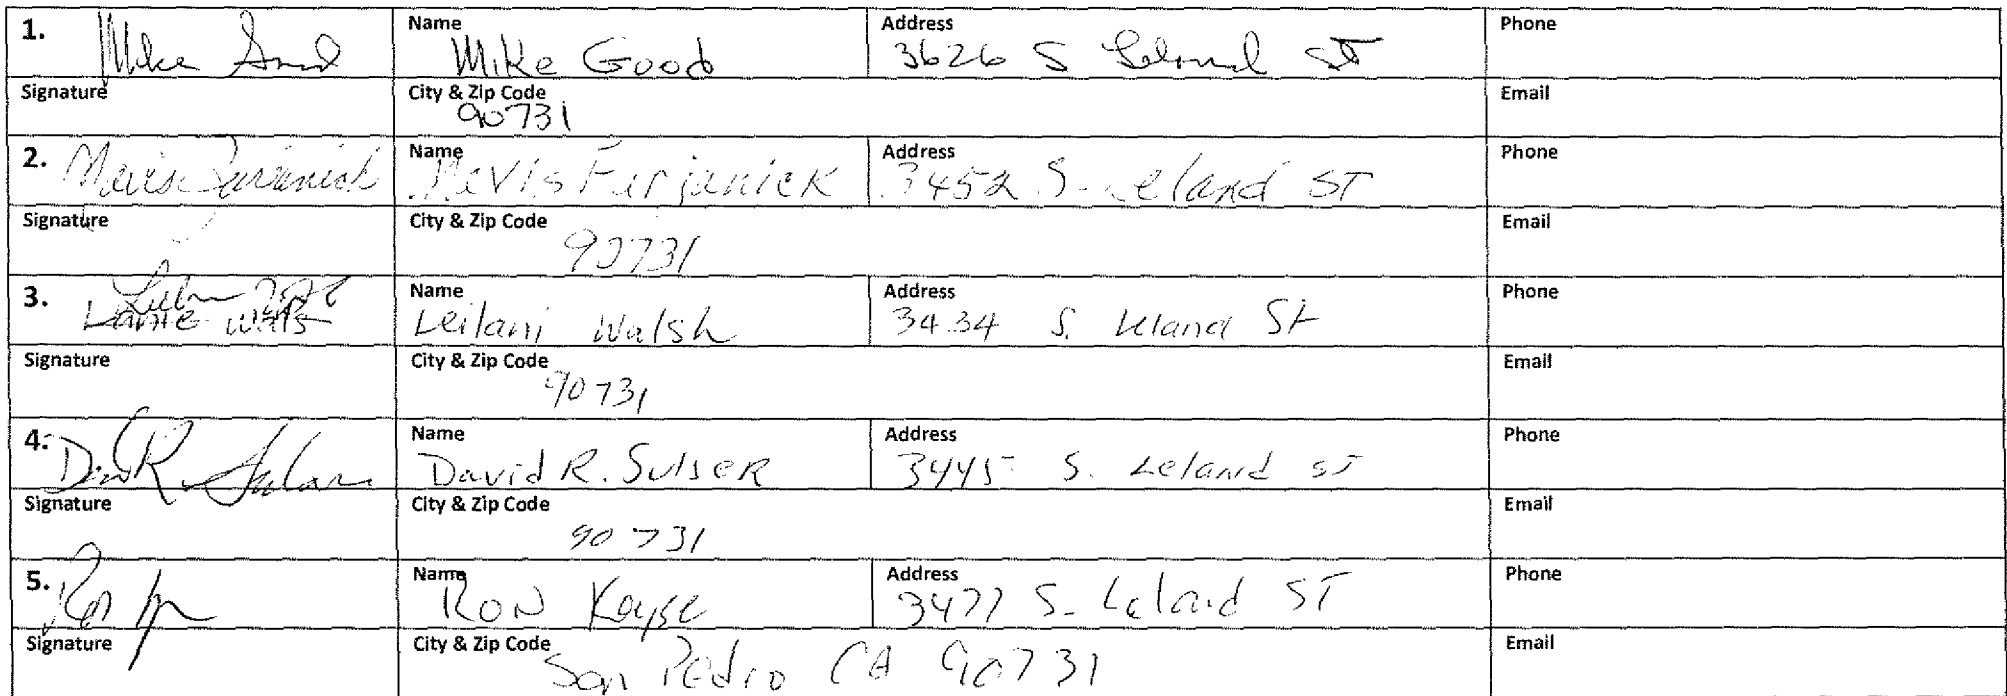 1. Mike Good Name Mike Good Address 3626 S Leland ST Phone
Signature City & Zip Code 90731 Email
2. Name Address 3452 S. Leland ST Phone
Signature City & Zip Code 90731 Email
3. Name Leilani Walsh Address 3434 S. Leland St Phone
Signature City & Zip Code 90731 Email
4. Name David R. Sulser Address 3445 S. Leland ST Phone
Signature City & Zip Code 90731 Email
5. Ron Name RON Kayse Address 3477 S. Leland ST Phone
Signature City & Zip Code San Pedro CA 90731 Email